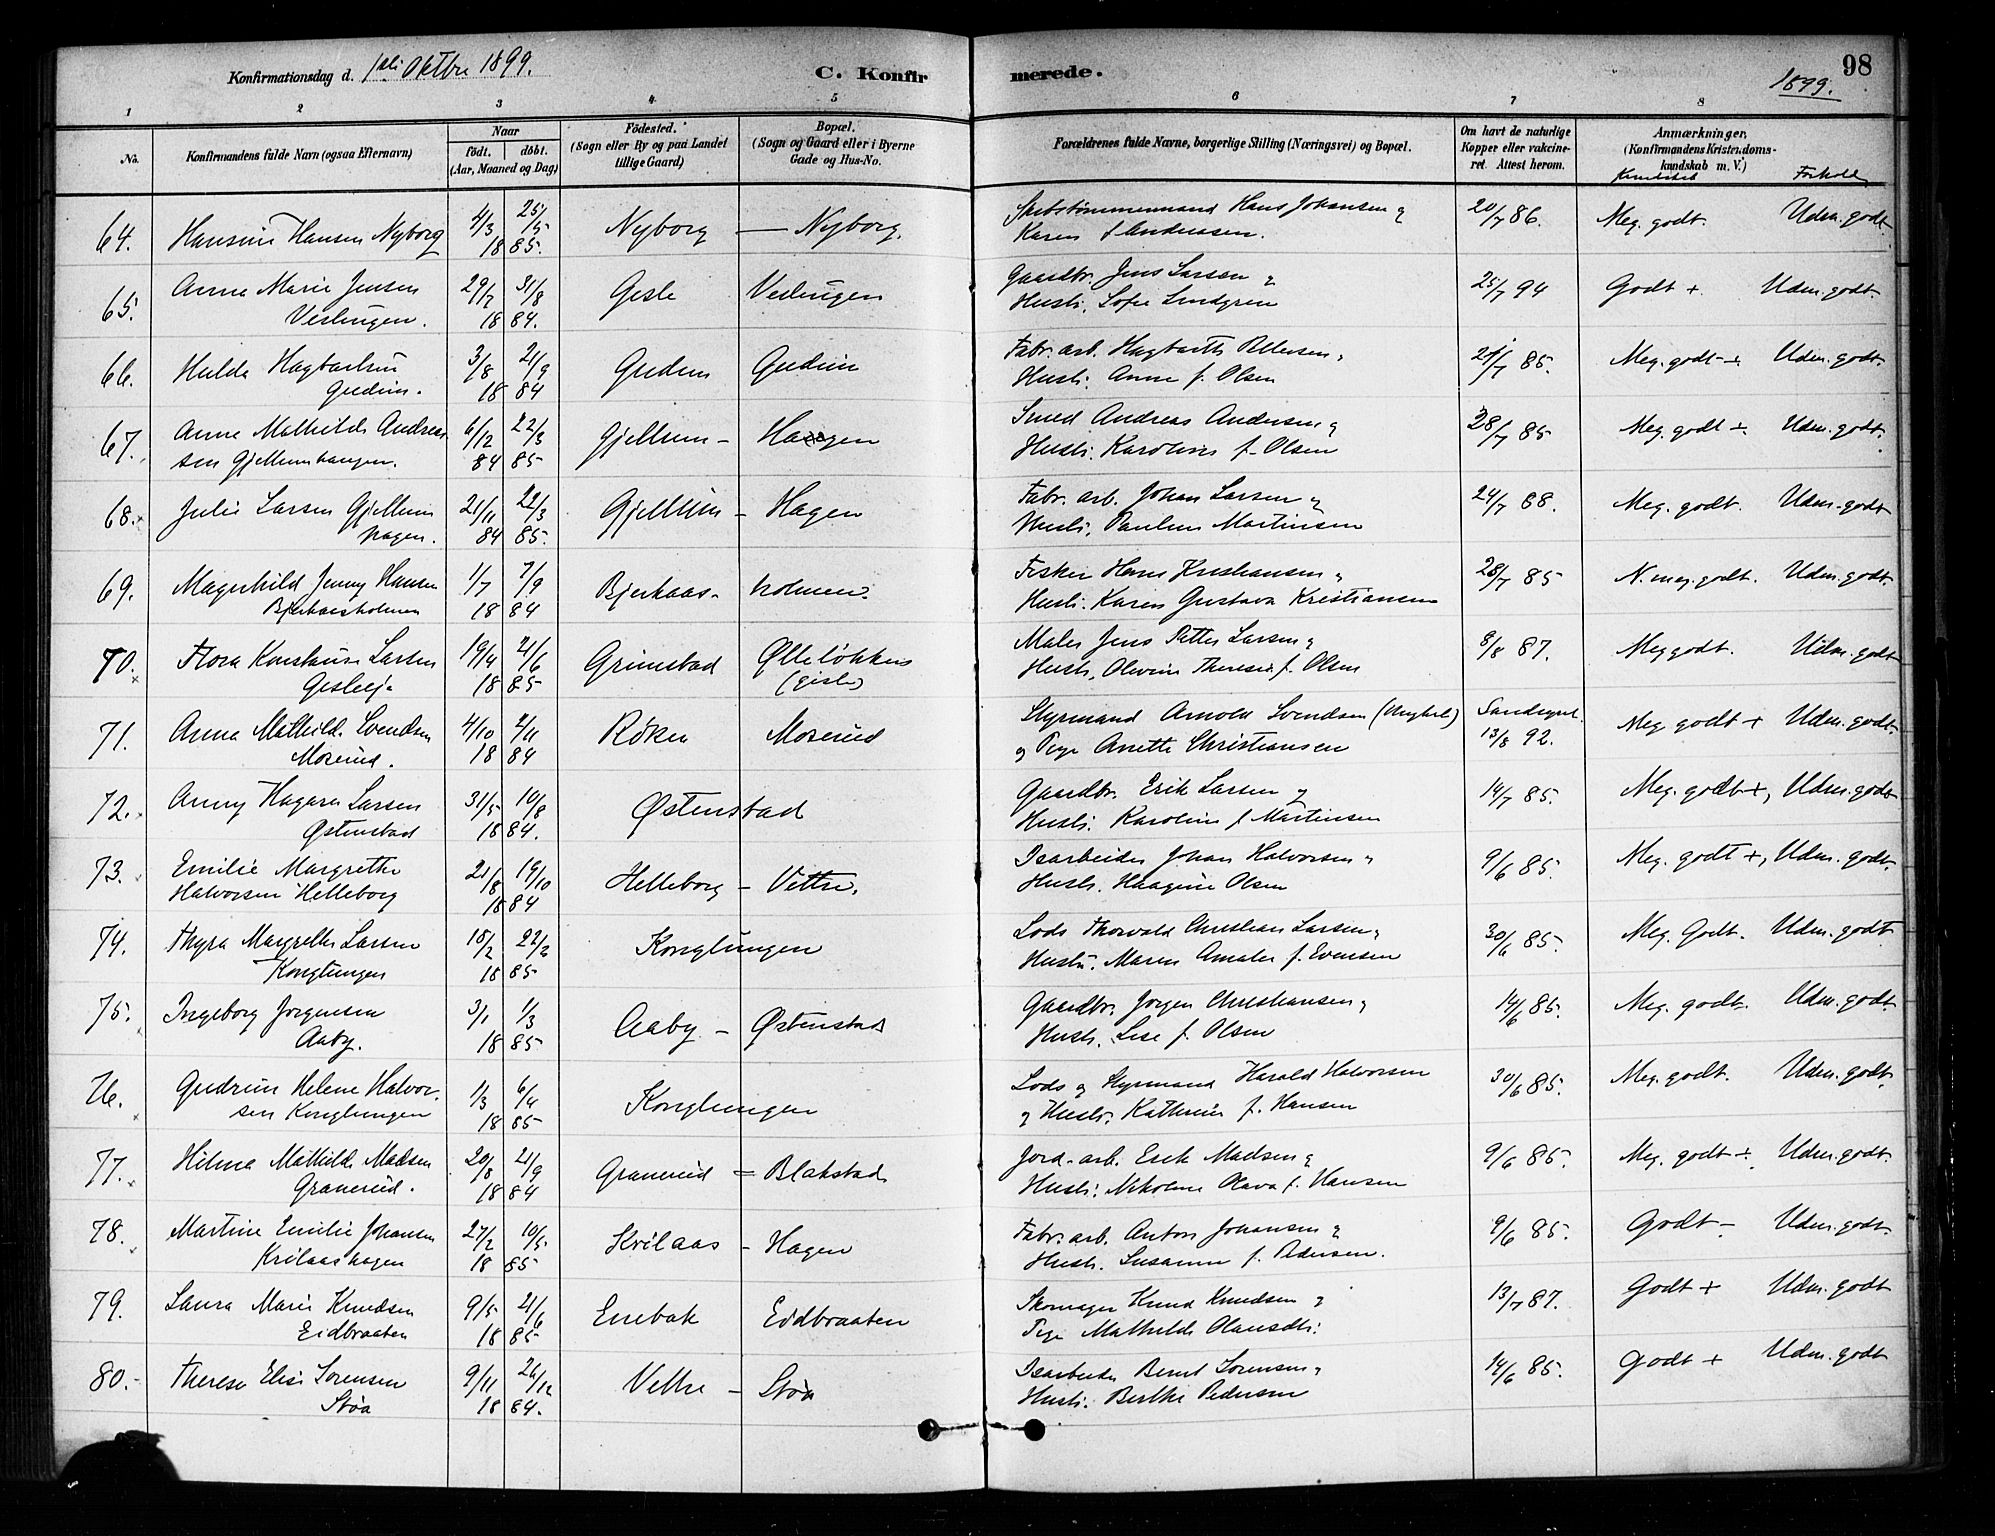 Konfirmationsdag d. 1ste Oktbr 1899. C. Konfirmerede. 98
1899.
1 2 3 4 5 6 7 8
No. Konfirmandens fulde Navn (ogsaa Efternavn) Naar födt. döbt. (Aar, Maaned og Dag) Födested. (Sogn eller By og paa Landet tillige Gaard) Bopæl. (Sogn og Gaard eller i Byerne Gade og Hus-No. Forældrenes fulde Navne, borgerlige Stilling (Næringsvei) og Bopæl. Om havt de naturlige Kopper eller vakcineret. Attest herom. Anmærkninger, (Konfirmandens Kristendomskundskab m. V.) Kundskab Forhold
64. Hansine Hansen Nyborg 4/3 25/5 Nyborg — Nyborg. Skibstømmermand Hans Johansen og 20/7 86. Meg. godt. Udm. godt.
18 85. Karen f. Andersen.
65. Anna Marie Jensen 29/7 31/8 Gisle Veslungen Gaardbr. Jens Larsen og 25/7 94 Godt +. Udm. godt.
Veslungen. 18 84. Hustr. Sofie Lindgren
66. Hulda Hagbartsen 3/8 21/9 Gudim Gudim Fabr. arb. Hagbarth Pettersen og 21/7 85. Meg. godt ÷ Udm. godt.
Gudim. 18 84 Hustr. Anne f. Olsen
67. Anna Mathilde Andreas 6/12 22/3 Gjellum – Haugen Smed Andreas Andersen og 28/7 85 Meg. godt ÷. Udm. godt.
sen Gjellumhaugen. 84 85 Hustr. Karoline f. Olsen
68. Julie Larsen Gjellum 21/11 22/3 Gjellum – Hagen Fabr. arb. Johan Larsen og 24/7 88. Meg. godt. Udm. godt
hagen. 84 85. Hustr. Pauline Martinsen
69. Magnhild Jenny Hansen 1/7 7/9 Bjerkaas- holmen. Fisker Hans Kristiansen og 28/7 85 N. meg. godt. Udm. godt.
Bjerkaasholmen 18 84 Hustr. Karen Gustava Kristiansen
70. Flora Konstanse Larsen 19/4 21/6 Grimstad Ølleløkken Maler Jens Petter Larsen og 8/8 87. Meg godt. Udm. godt
18 85 (Gisle) Hustr. Olevine Therese f. Olsen
71. Anna Mathilde Svendsen 4/10 2/11 Røken Morerud Styrmand Arnold Svendsen (Ungkarl) 13/8 92. Meg godt + Udm. godt.
Morerud. 18 84 og Pige Anette Christiansen
72. Anny Hagara Larsen 31/5 10/8 Østenstad Gaardbr. Erik Larsen og 14/7 85. Meg. godt +, Udm. godt
Østenstad 18 84. Hustr. Karoline f. Martinsen
73. Emilie Margrethe 21/8 19/10 Helleborg – Vettre. Isarbeider Johan Halvorsen og 9/6 85. Meg. godt +, Udm. godt.
Halvorsen Helleborg 18 84 Hustr. Haagine Olsen
74. Thyra Margrethe Larsen 18/2 Konglungen Lods Thorvald Christian Larsen og 30/6 85. Meg. Godt. Udm. godt
Konglungen 18 85. Hustr. Maren Amalie f. Evensen
75. Ingeborg Jørgensen 3/1 1/3 Aaby – Østenstad Gaardbr. Jørgen Christiansen og 14/6 85. Meg. godt. Udm. godt
Aaby. 18 85 Hustr. Lise f. Olsen
76. Gudrun Helene Halvor- 1/3 6/4 Konglungen Lods og Styrmand Harald Halvorsen 30/6 85. Meg. godt. Udm. godt
sen Konglungen 18 85 og Hustr. Kathrine f. Hansen
77. Hilma Mathilde Madsen 20/8 21/9 Granerud = Blakstad Jord. arb. Erik Madsen og 9/6 85. Meg. godt ÷. Udm. godt.
Granerud. 18 84 Hustr. Nikoline Olava f. Hansen
78. Martine Emilie Johansen 27/2 10/5 Krilaas – Hagen Fabr. arb. Anton Johansen og 9/6 85. Godt – Udm. godt.
Krilaashagen 18 85 Hustr. Susanne f. Pedersen.
79. Laura Marie Knudsen 9/5 21/6 Enebak Eidbraaten Skomager Knud Knudsen og 13/7 87. Godt + Udm. godt
Eidbraaten 18 85 Pige Mathilde Olausdtr.
80. Therese Elise Sørensen 9/11 26/12 Vettre – Støa Isarbeider Bernt Sørensen og 14/6 85. Godt + Udm. godt
Støa 18 84. Hustr. Berthe Pedersen